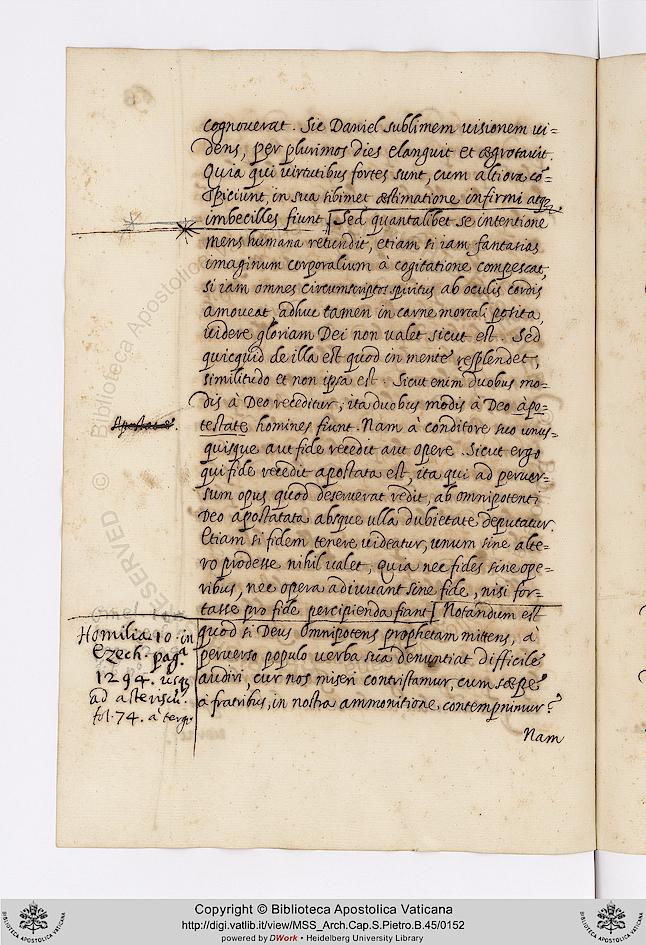 cognouerat. Sic Daniel sublimem uisionem ui=
dens, per plurimos dies elanguit et ægrotauit.
Quia qui uirtutibus fortes sunt, cum altiora cō=
spiciunt, in sua sibimet æstimatione infirmi atq3
imbecilles fiunt [Sed quantalibet se intentione
mens humana retendit, etiam si iam fantasias
imaginum corporalium à cogitatione compescat,
si iam omnes circumscriptos spiritus ab oculis cordis
amoueat, adhuc tamen in carne mortali posita,
uidere gloriam Dei non ualet sicut est. Sed
quicquid de illa est quod in mente resplendet,
similitudo et non ipsa est. Sicut enim duobus mo=
dis à Deo receditur, ita duobus modis à Deo apo=
testate homines fiunt. Nam à conditore suo unus=
quisque aut fide recedit aut opere. Sicut ergo
qui fide recedit apostata est, ita qui ad peruer=
sum opus quod deseruerat redit, ab omnipotenti
Deo apostatata absque ulla dubietate deputatur.
Etiam si fidem tenere uideatur, unum sine alte=
ro prodesse nihil ualet, quia nec fides sine ope=
ribus, nec opera adiuuant sine fide, nisi for=
tasse pro fide percipienda fiant] Notandum est
quod si Deus omnipotens prophetam mittens, à
peruerso populo uerba sua denuntiat difficile
audiri, cur nos miseri contristamur, cum sæpe
a fratribus, in nostra ammonitione contemnimur?
Nam
Homilia 10 in
Ezech. pag.ª
1294. usq3
ad asterisc.
fol. 74. à tergo
Copyright © Biblioteca Apostolica Vaticana
http://digi.vatlib.it/view/MSS_Arch.Cap.S.Pietro.B.45/0152
powered by DWork • Heidelberg University Library